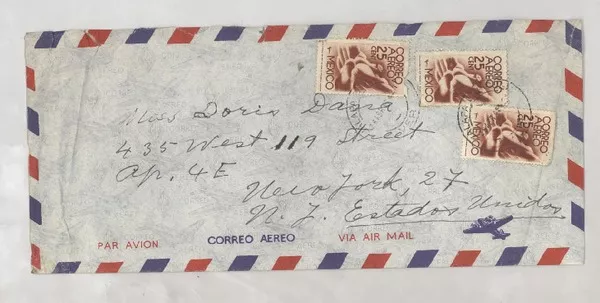 CORREO AEREO 25 CENT MEXICO
CORREO AEREO 25 CENT MEXICO
CORREO AEREO 25 CENT MEXICO
Miss Doris Dana,
435 West 119 Street
Ap. 4E
New York, 27
N. Y. Estados Unidos
PAR AVION CORREO AEREO VIA AIR MAIL